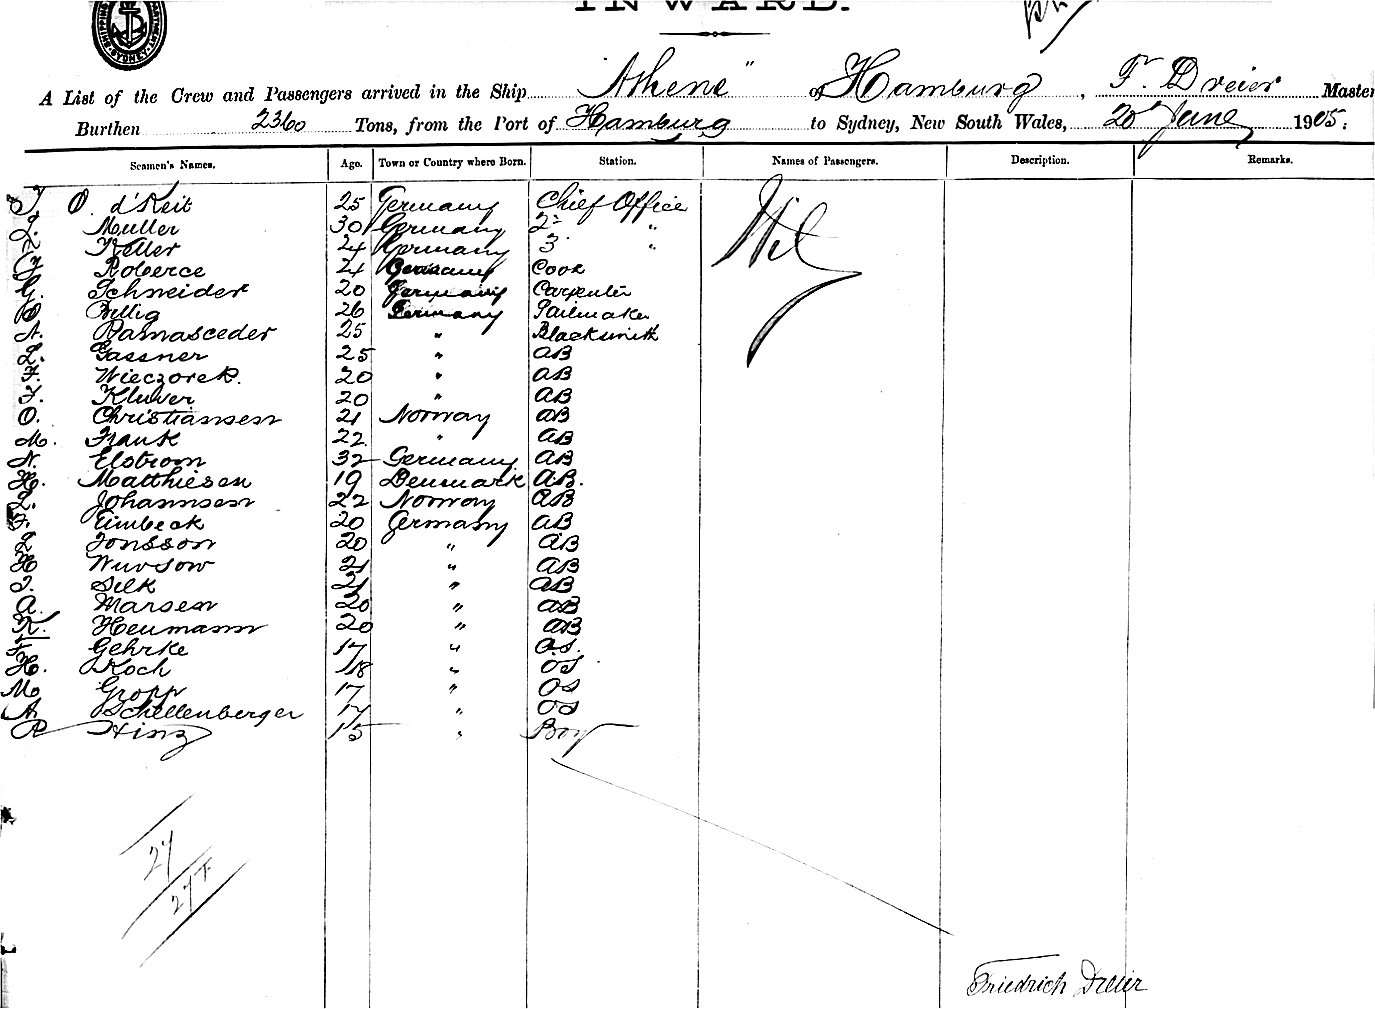 INWARD.
SHIPPING SYDNEY
A List of the Crew and Passengers arrived in the Ship "Athene" of Hamburg, Fr. Dreier Master
Burthen 2360 Tons, from the Port of Hamburg to Sydney, New South Wales, 20th June 1905.
Seamen's Names. Age. Town or Country where Born. Station. Names of Passengers. Description. Remarks.
O. d'Reit 25 Germany Chief Office Nil
Muller 30 Germany 2 "
Keller 24 Germany 3 "
Roberce 24 Germany Cook
G. Schneider 20 Germany Carpenter
Billig 26 Germany Sailmaker
A. Damasceder 25 " Blacksmith
Gassner 25 " AB
F. Wieczorek. 20 " AB
F. Kluver 20 " AB
O. Christiansen 21 Norway AB
M. Frank 22 " AB
N. Elstrom 32 Germany AB
H. Matthiesen 19 Denmark AB.
Johannsen 22 Norway AB
F. Eimbeck 20 Germany AB
Jonsson 20 " AB
H Wuvsow 21 " AB
Selk 21 " AB
A. Marsen 20 " AB
K. Heumann 20 " AB
F. Gehrke 17 " O.S.
H. Koch 18 " OS
M Gropp 17 " OS
A. Schellenberger 17 " OS
R Hinz 15 " Boy
27
27 F.
Friedrich Dreier